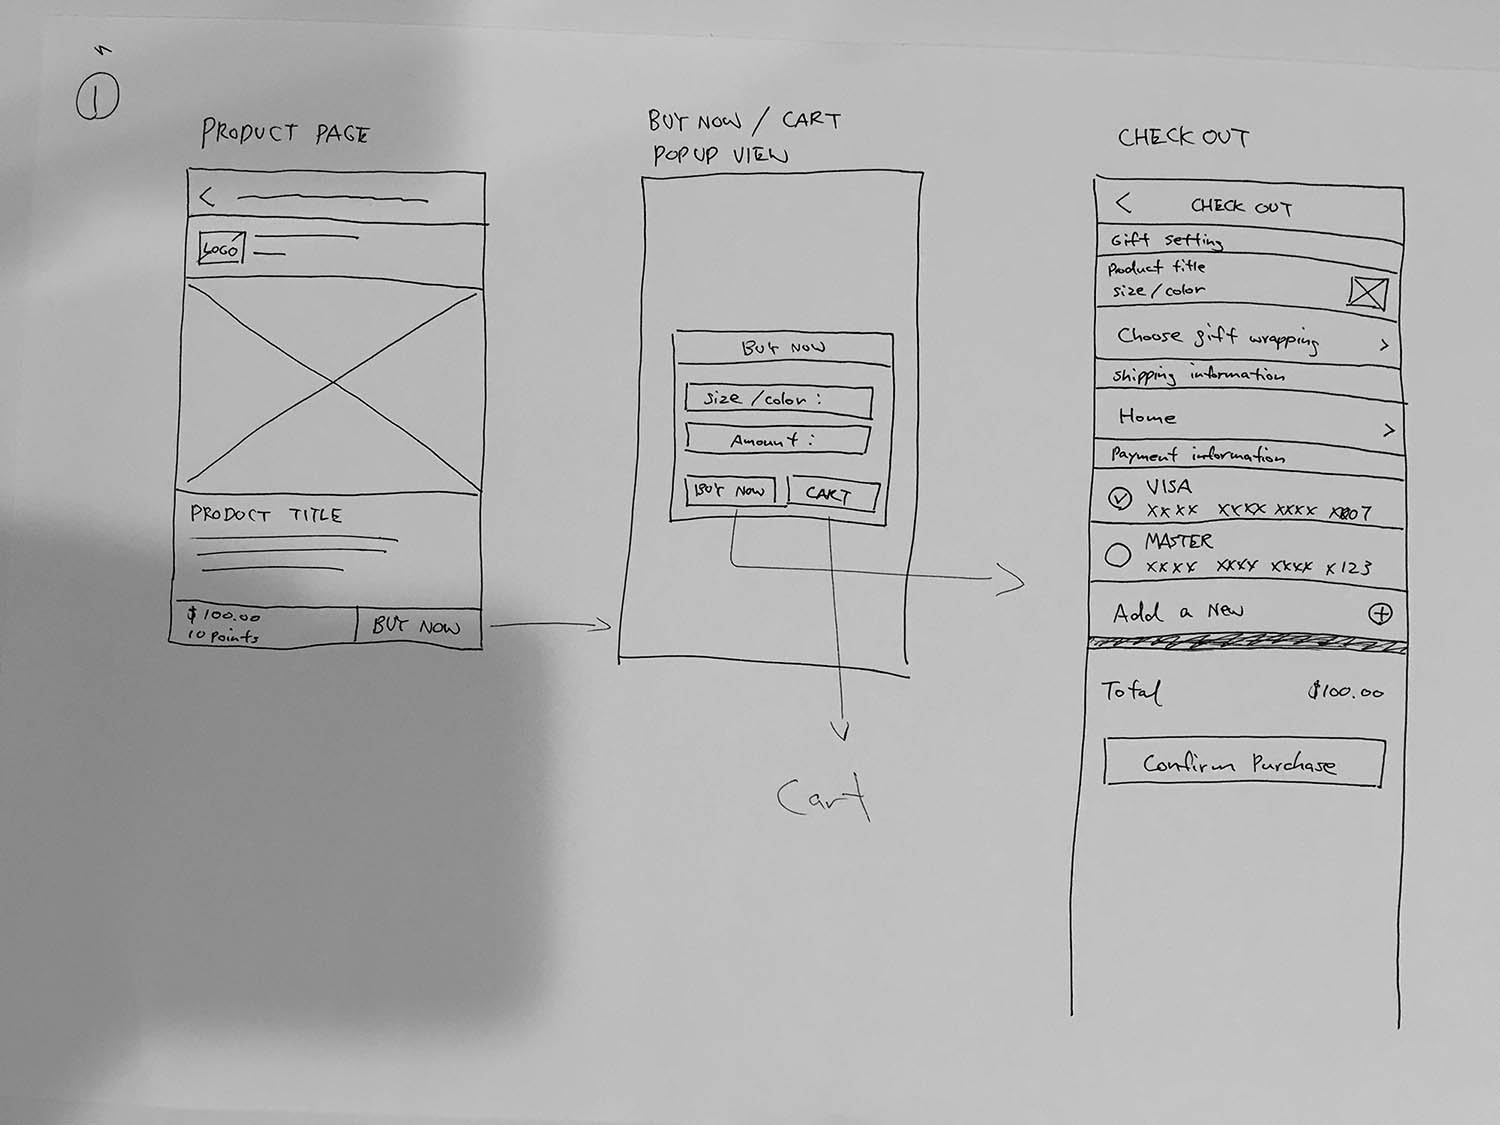 1
PRODUCT PAGE
<
LOGO
PRODUCT TITLE
$100.00
10 points
BUY NOW
BUY NOW / CART
POPUP VIEW
BUY NOW
Size /color :
Amount :
BUY NOW
CART
Cart
CHECK OUT
< CHECK OUT
Gift setting
Product title
size/color
Choose gift wrapping >
Shipping information
Home >
Payment information
VISA
xxxx xxxx xxxx
MASTER
xxxx xxxx xxxx x123
Add a New +
Total $100.00
Confirm Purchase